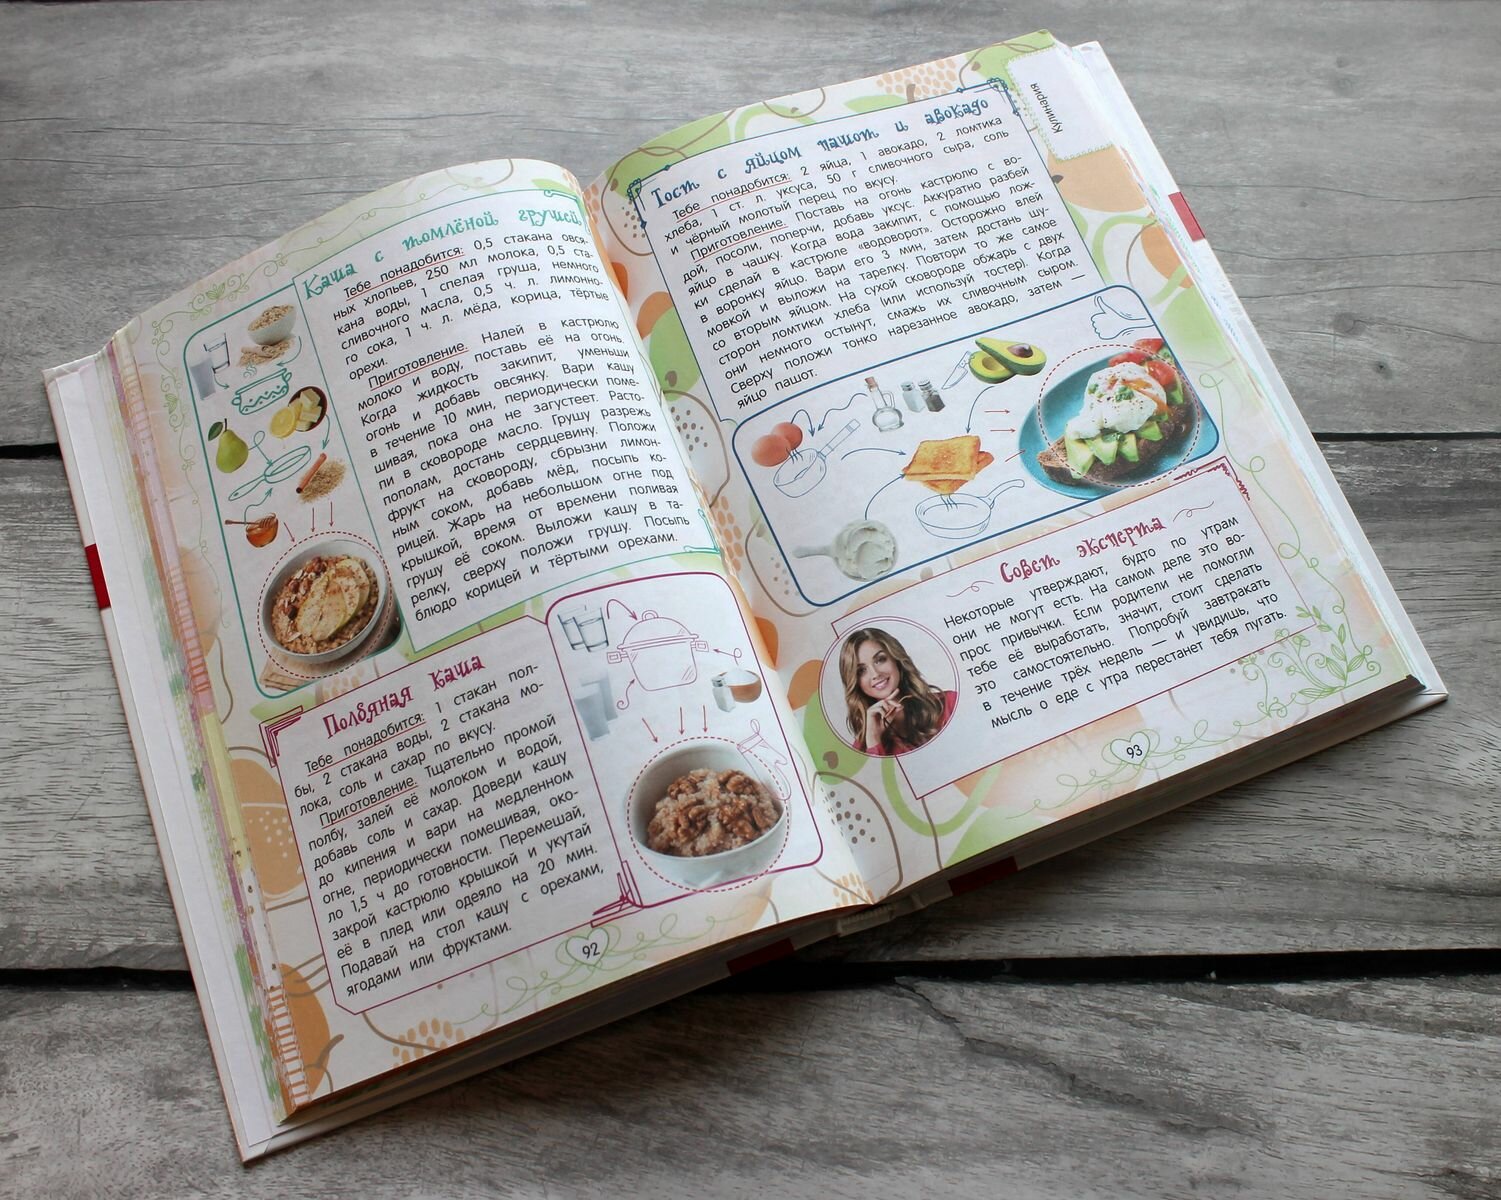 Каша с томлёной грушей
Тебе понадобится: 0,5 стакана овся-
ных хлопьев, 250 мл молока, 0,5 ста-
кана воды, 1 спелая груша, немного
сливочного масла, 0,5 ч. л. лимонно-
го сока, 1 ч. л. мёда, корица, тёртые
орехи.
Приготовление. Налей в кастрюлю
молоко и воду, поставь её на огонь.
Когда жидкость закипит, уменьши
огонь и добавь овсянку. Вари кашу
в течение 10 мин, периодически поме-
шивая, пока она не загустеет. Расто-
пи в сковороде масло. Грушу разрежь
пополам, достань сердцевину. Положи
фрукт на сковороду, сбрызни лимон-
ным соком, добавь мёд, посыпь ко-
рицей. Жарь на небольшом огне под
крышкой, время от времени поливая
грушу её соком. Выложи кашу в та-
релку, сверху положи грушу. Посыпь
блюдо корицей и тёртыми орехами.
Полбяная каша
Тебе понадобится: 1 стакан пол-
бы, 2 стакана воды, 2 стакана мо-
лока, соль и сахар по вкусу.
Приготовление. Тщательно промой
полбу, залей её молоком и водой,
добавь соль и сахар. Доведи кашу
до кипения и вари на медленном
огне, периодически помешивая, око-
ло 1,5 ч до готовности. Перемешай,
закрой кастрюлю крышкой и укутай
её в плед или одеяло на 20 мин.
Подавай на стол кашу с орехами,
ягодами или фруктами.
92
Кулинария
Тост с яйцом пашот и авокадо
Тебе понадобится: 2 яйца, 1 авокадо, 2 ломтика
хлеба, 1 ст. л. уксуса, 50 г сливочного сыра, соль
и чёрный молотый перец по вкусу.
Приготовление. Поставь на огонь кастрюлю с во-
дой, посоли, поперчи, добавь уксус. Аккуратно разбей
яйцо в чашку. Когда вода закипит, с помощью лож-
ки сделай в кастрюле «водоворот». Осторожно влей
в воронку яйцо. Вари его 3 мин, затем достань шу-
мовкой и выложи на тарелку. Повтори то же самое
со вторым яйцом. На сухой сковороде обжарь с двух
сторон ломтики хлеба (или используй тостер). Когда
они немного остынут, смажь их сливочным сыром.
Сверху положи тонко нарезанное авокадо, затем —
яйцо пашот.
Совет эксперта
Некоторые утверждают, будто по утрам
они не могут есть. На самом деле это во-
прос привычки. Если родители не помогли
тебе её выработать, значит, стоит сделать
это самостоятельно. Попробуй завтракать
в течение трёх недель — и увидишь, что
мысль о еде с утра перестанет тебя пугать.
93